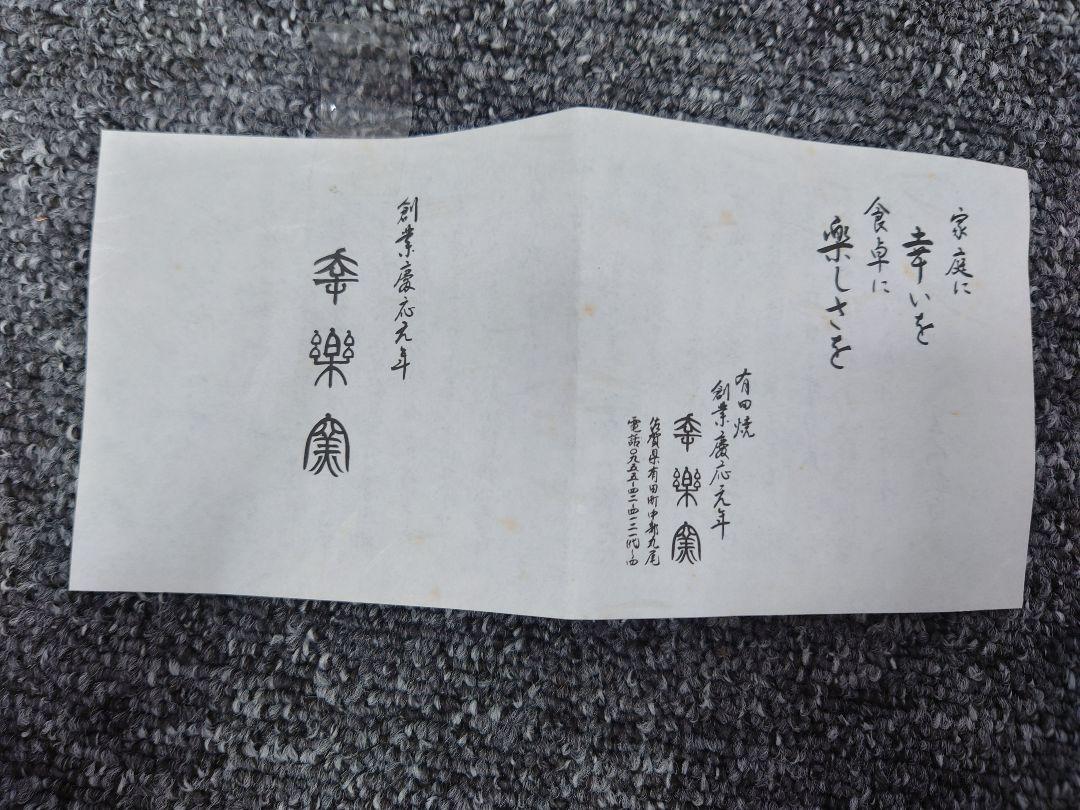 家庭に
幸いを
食卓に
楽しさを
有田焼
創業慶応元年
幸樂窯
佐賀県有田町中部丸尾
電話〇九五五-四二-四一二一代
創業慶応元年
幸樂窯